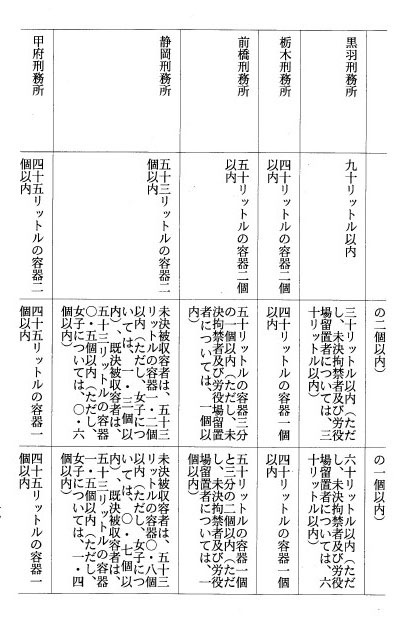 の二個以内）
の一個以内）
黒羽刑務所
九十リットル以内
三十リットル以内（ただ
し、未決拘禁者及び労役
場留置者については、三
十リットル以内）
六十リットル以内（ただ
し、未決拘禁者及び労役
場留置者については、六
十リットル以内）
栃木刑務所
四十リットルの容器二個
以内
四十リットルの容器一個
以内
四十リットルの容器一個
以内
前橋刑務所
五十リットルの容器二個
以内
五十リットルの容器三分
の一個以内（ただし、未
決拘禁者及び労役場留置
者については、一個以
内）
五十リットルの容器一個
と三分の二個以内（ただ
し、未決拘禁者及び労役
場留置者については、一
個以内）
静岡刑務所
五十三リットルの容器二
個以内
未決被収容者は、五十三
リットルの容器一・二個
以内（ただし、女子につ
いては、一・三個以
内）、既決被収容者は、
五十三リットルの容器
〇・五個以内（ただし、
女子については、〇・六
個以内）
未決被収容者は、五十三
リットルの容器〇・八個
以内（ただし、女子につ
いては、〇・七個以
内）、既決被収容者は、
五十三リットルの容器
一・五個以内（ただし、
女子については、一・四
個以内）
甲府刑務所
四十五リットルの容器二
個以内
四十五リットルの容器一
個以内
四十五リットルの容器一
個以内